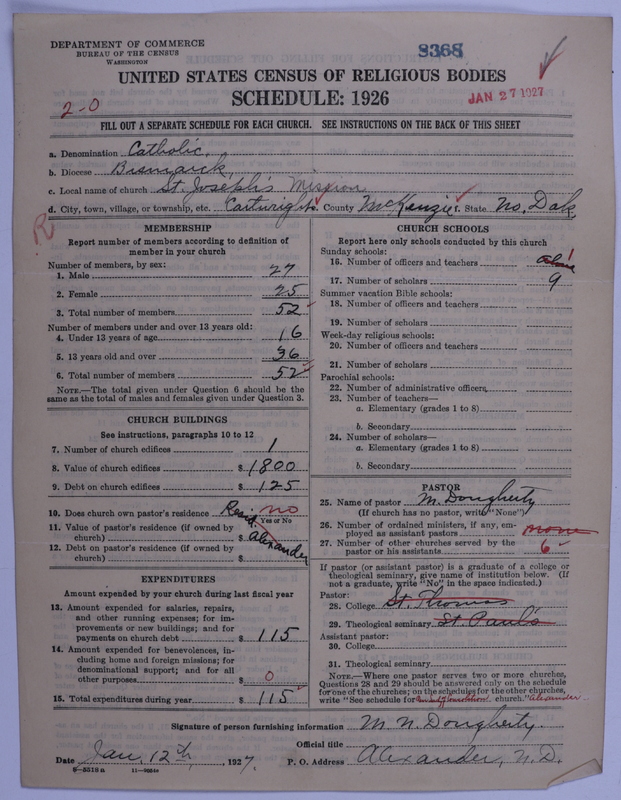 DEPARTMENT OF COMMERCE
BUREAU OF THE CENSUS
WASHINGTON
8368
UNITED STATES CENSUS OF RELIGIOUS BODIES
SCHEDULE: 1926
JAN 27 1927
2-0
FILL OUT A SEPARATE SCHEDULE FOR EACH CHURCH. SEE INSTRUCTIONS ON THE BACK OF THIS SHEET
a. Denomination Catholic
b. Diocese Bismarck
c. Local name of church St. Joseph's Mission
d. City, town, village, or township, etc. Cartwright e. County McKenzie f. State No. Dak
R
MEMBERSHIP
Report number of members according to definition of
member in your church
Number of members, by sex:
1. Male 27
2. Female 25
3. Total number of members 52
Number of members under and over 13 years old:
4. Under 13 years of age 16
5. 13 years old and over 36
6. Total number of members 52
NOTE.—The total given under Question 6 should be the
same as the total of males and females given under Question 3.
CHURCH BUILDINGS
See instructions, paragraphs 10 to 12
7. Number of church edifices 1
8. Value of church edifices $ 1800
9. Debt on church edifices $ 125
10. Does church own pastor's residence no
Yes or No
11. Value of pastor's residence (if owned by
church) $ Resid. Alexander
12. Debt on pastor's residence (if owned by
church) $
EXPENDITURES
Amount expended by your church during last fiscal year
13. Amount expended for salaries, repairs,
and other running expenses; for im-
provements or new buildings; and for
payments on church debt $ 115
14. Amount expended for benevolences, in-
cluding home and foreign missions; for
denominational support; and for all
other purposes $ 0
15. Total expenditures during year $ 115
CHURCH SCHOOLS
Report here only schools conducted by this church
Sunday schools:
16. Number of officers and teachers 1
17. Number of scholars 9
Summer vacation Bible schools:
18. Number of officers and teachers
19. Number of scholars
Week-day religious schools:
20. Number of officers and teachers
21. Number of scholars
Parochial schools:
22. Number of administrative officers
23. Number of teachers—
a. Elementary (grades 1 to 8)
b. Secondary
24. Number of scholars—
a. Elementary (grades 1 to 8)
b. Secondary
PASTOR
25. Name of pastor M. Dougherty
(If church has no pastor, write "None")
26. Number of ordained ministers, if any, em-
ployed as assistant pastors none
27. Number of other churches served by the
pastor or his assistants 6
If pastor (or assistant pastor) is a graduate of a college or
theological seminary, give name of institution below. (If
not a graduate, write "No" in the space indicated.)
Pastor:
28. College St. Thomas
29. Theological seminary St. Paul's
Assistant pastor:
30. College
31. Theological seminary
NOTE.—Where one pastor serves two or more churches,
Questions 28 and 29 should be answered only on the schedule
for one of the churches; on the schedules for the other churches,
write "See schedule for church." Alexander
Signature of person furnishing information M. N. Dougherty
Official title
Date Jan. 12th, 1927. P. O. Address Alexander, N. D.